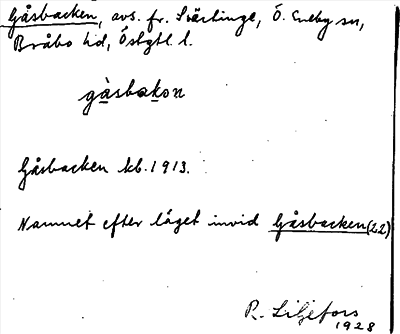 Gåsbacken, avs. fr. Svärtinge, Ö. Eneby sn,
Bråbo hd, Östgtl. l.
gåsbakon
Gåsbacken kb. 1913.
Namnet efter läget invid Gåsbacken (22)
R. Liljefors
1928